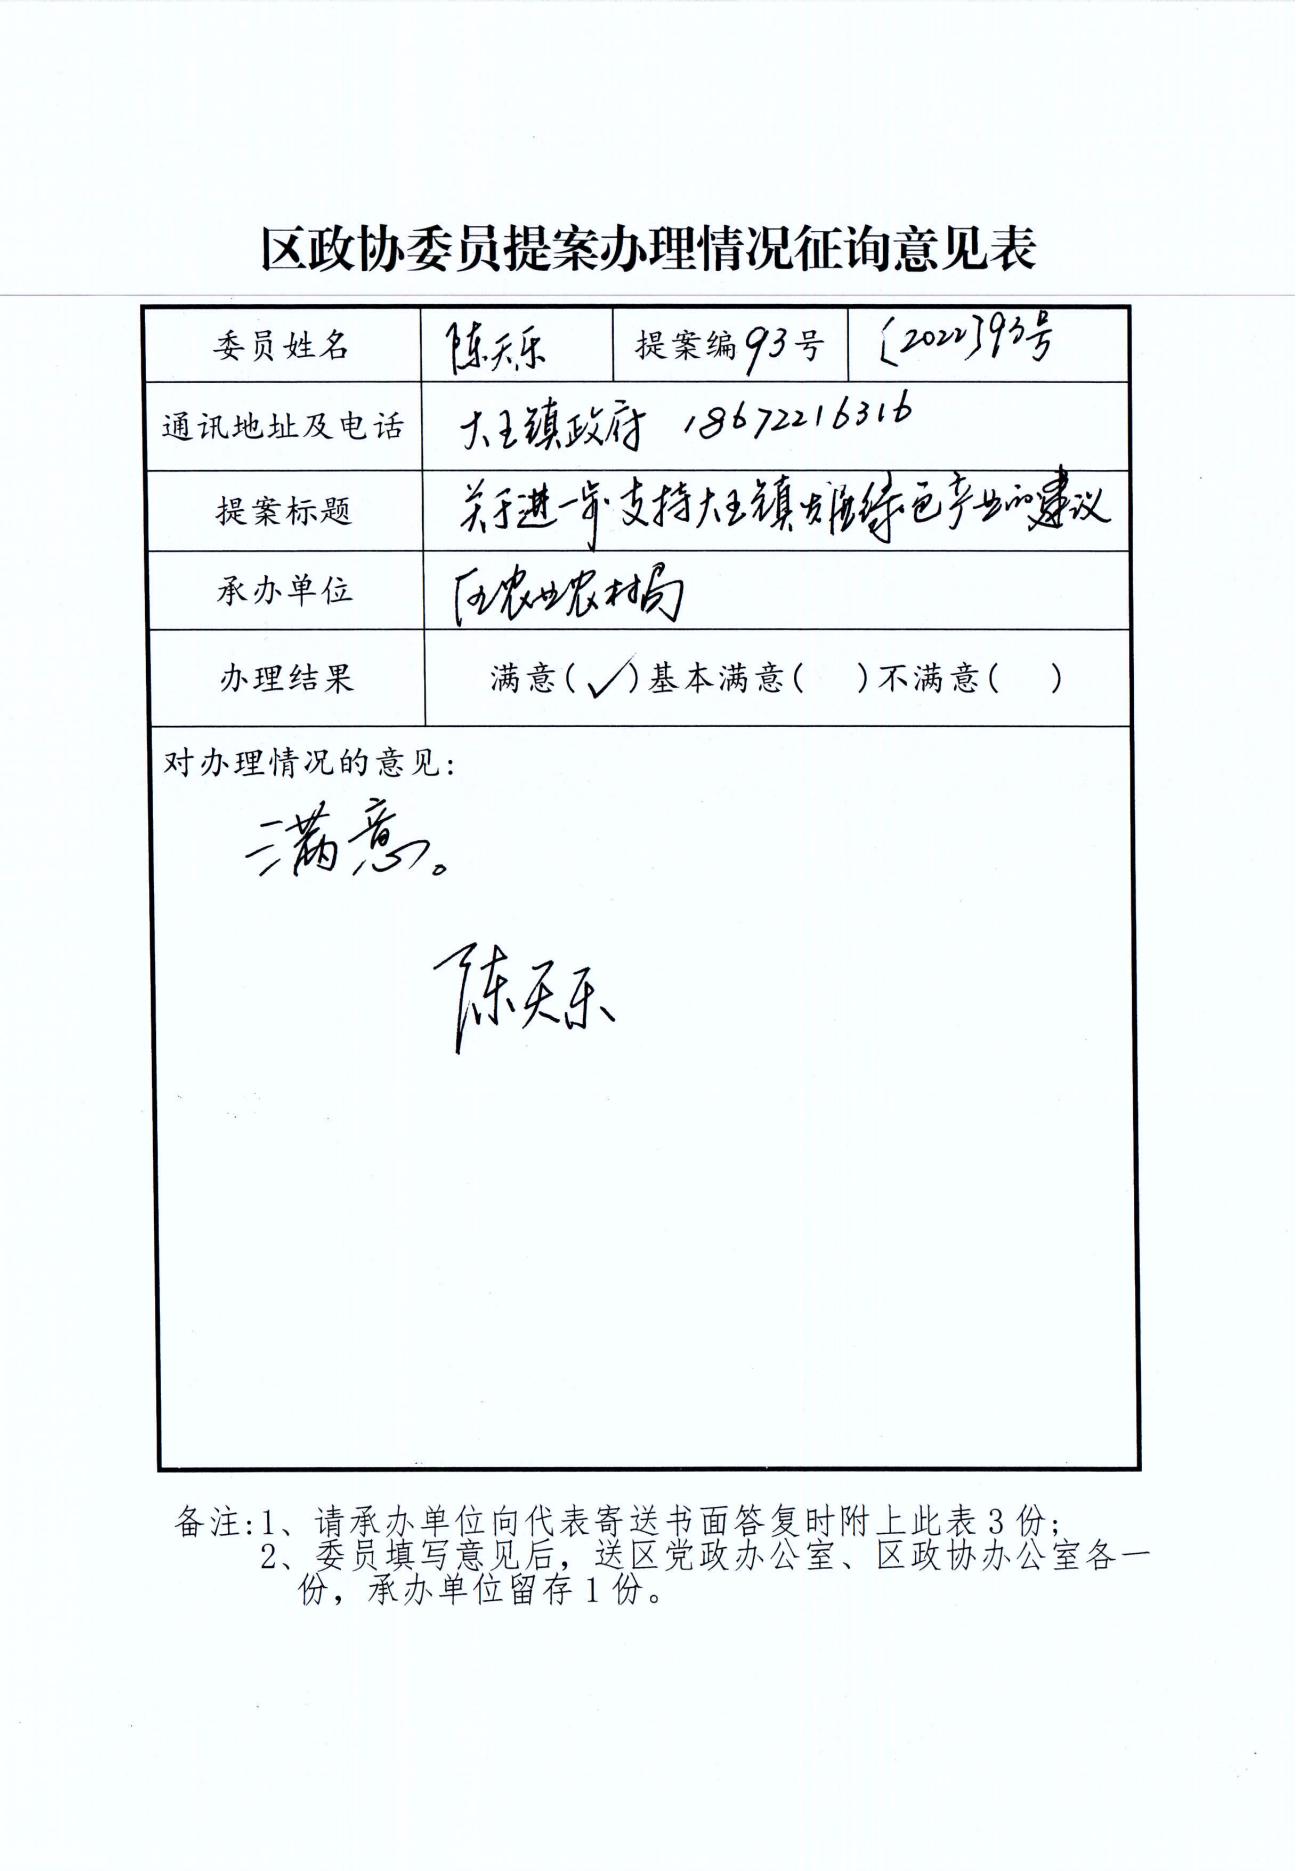 区政协委员提案办理情况征询意见表
委员姓名 陈天乐 提案编93号 〔2022〕93号
通讯地址及电话 大王镇政府 18672216316
提案标题 关于进一步支持大王镇发展绿色产业的建议
承办单位 区农业农村局
办理结果 满意(✓)基本满意( )不满意( )
对办理情况的意见:
满意。
陈天乐
备注:1、请承办单位向代表寄送书面答复时附上此表3份;
2、委员填写意见后,送区党政办公室、区政协办公室各一
份,承办单位留存1份。